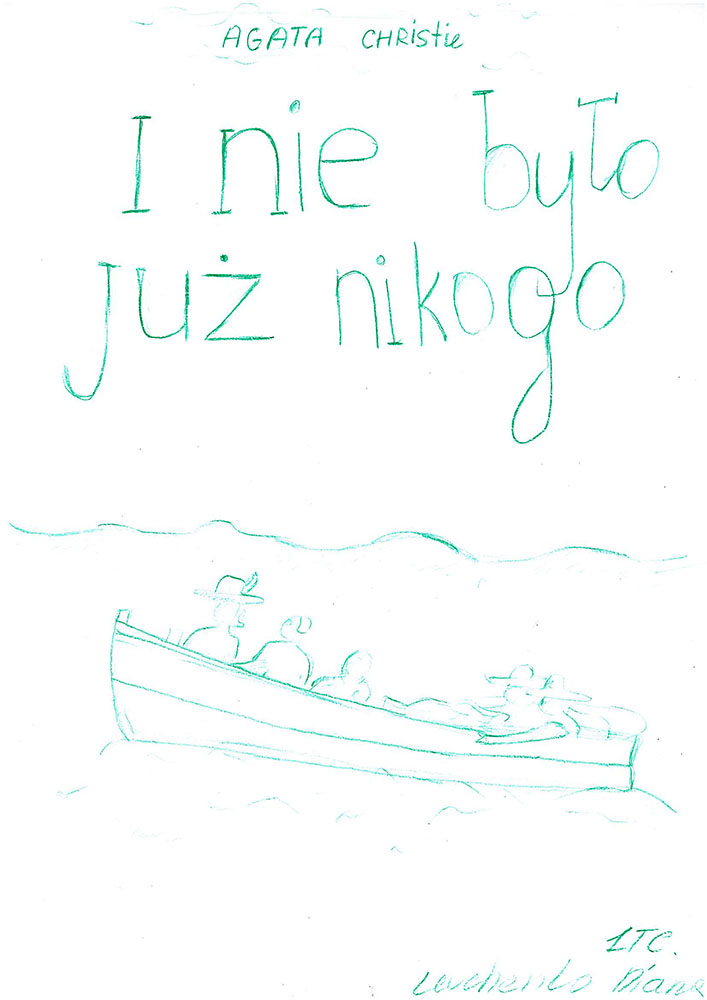 AGATA CHRistie
I nie było
już nikogo
1TC.
Diana